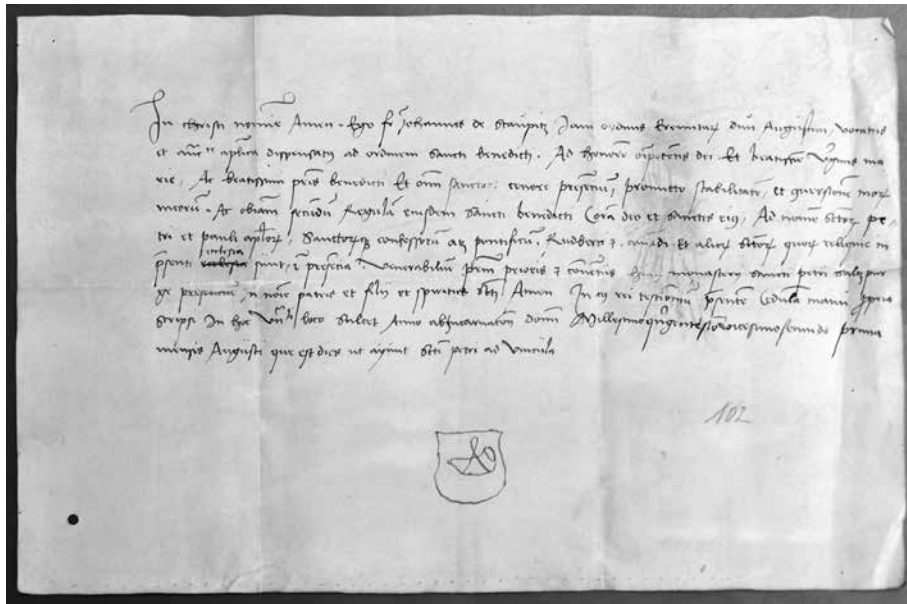 In christi nomine Amen. Ego fr Johannes de Staupitz Iam ordinis Eremitar diui Augustini, vocatus
et auc^te aplica dispensatus ad ordinem sancti benedicti. Ad honorem oipotentis dei Et beatissime Virginis ma
rie, Ac beatissimi pris benedicti Et omni sanctor: tenore presentium, promitto stabilitate, et conuersione mor
meorum. Ac obiam secundu Regulam eiusdem sancti benedicti Cora deo et sanctis eius, Ad sctor pe
tri et pauli aplor, Sanctorq confessorum atq pontificum, Rudberti et Et alior sctor quor reliquie in
psenti ecclesia sunt, presencia Venerabilium prioris et conuentus huius monasterij sancti petri salzpur
ge in noie patris et filij et spiritus scti Amen In cuius rei testimoniu psente Cedulam manu ppria
scripsi In hoc loco scilicet Anno abIncarnaton domini Millesimoquigentesimovicesimosecundo prima
mensis Augusti que est dies ut aiunt scti petri ad vincula
102